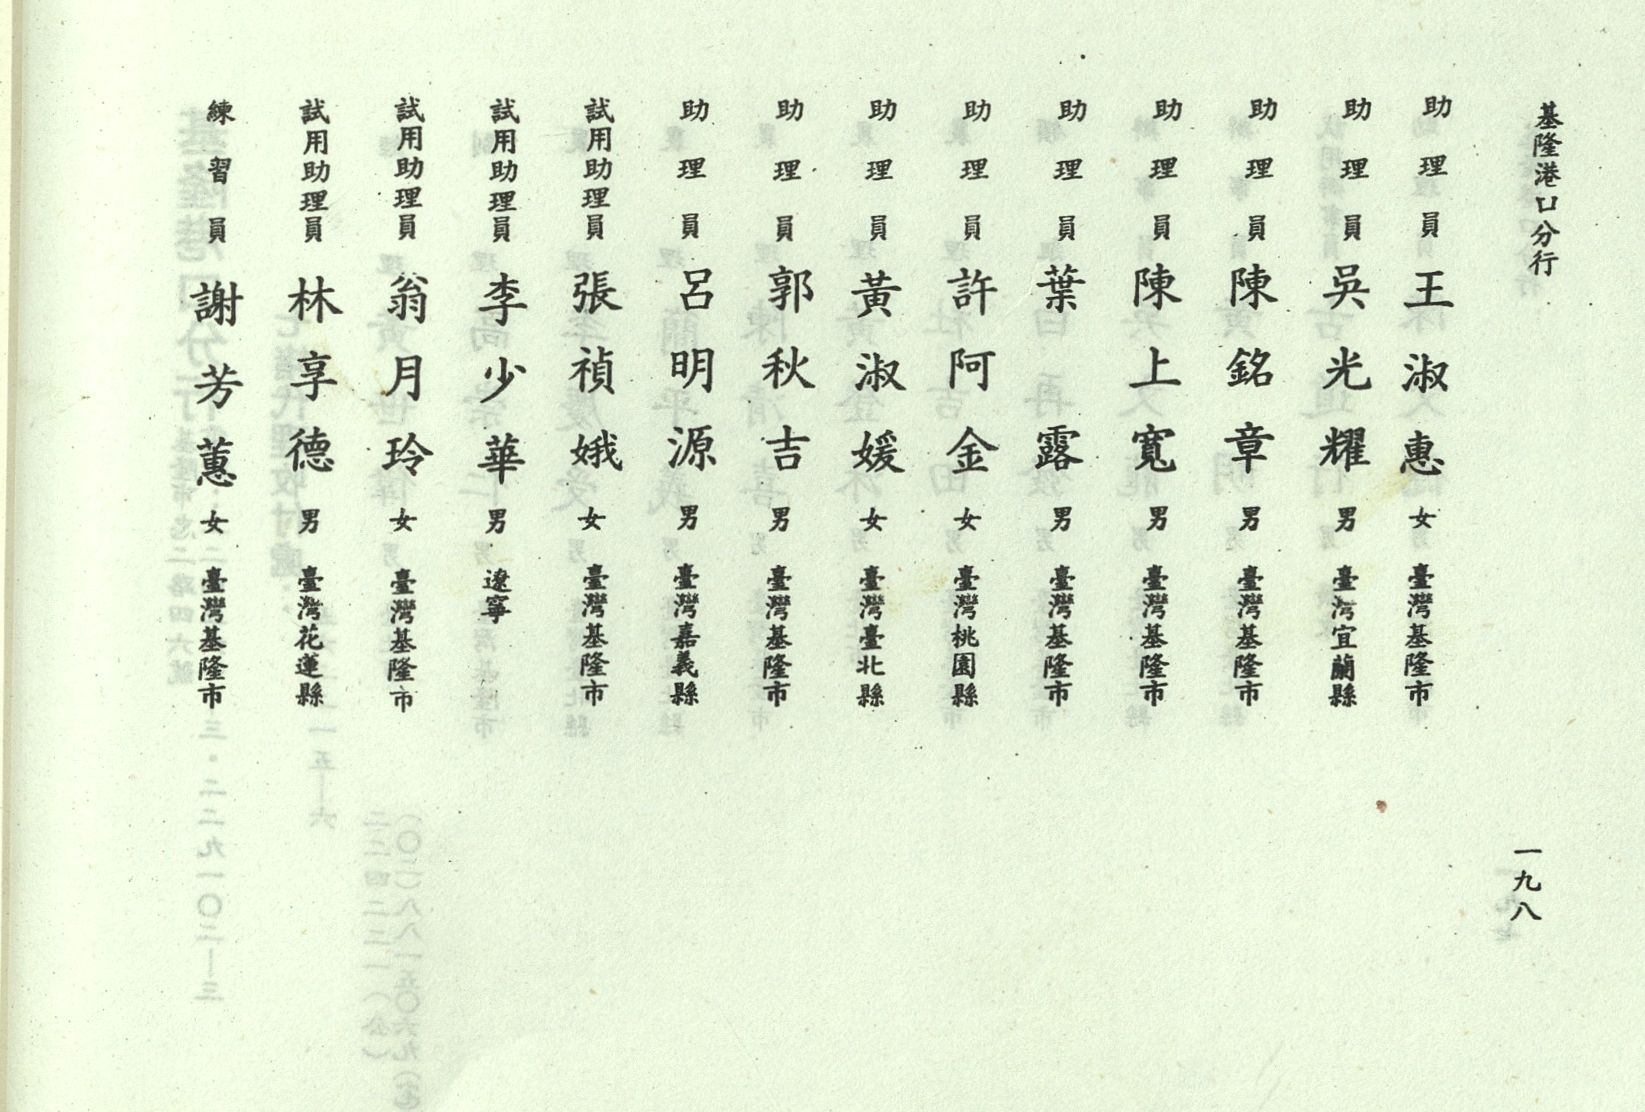 基隆港口分行
一九八
助理員 王淑惠 女 臺灣基隆市
助理員 吳光耀 男 臺灣宜蘭縣
助理員 陳銘章 男 臺灣基隆市
助理員 陳上寬 男 臺灣基隆市
助理員 葉露 男 臺灣基隆市
助理員 許阿金 女 臺灣桃園縣
助理員 黃淑媛 女 臺灣臺北縣
助理員 郭秋吉 男 臺灣基隆市
助理員 呂明源 男 臺灣嘉義縣
試用助理員 張禎娥 女 臺灣基隆市
試用助理員 李少華 男 遼寧
試用助理員 翁月玲 女 臺灣基隆市
試用助理員 林享德 男 臺灣花蓮縣
練習員 謝芳蕙 女 臺灣基隆市